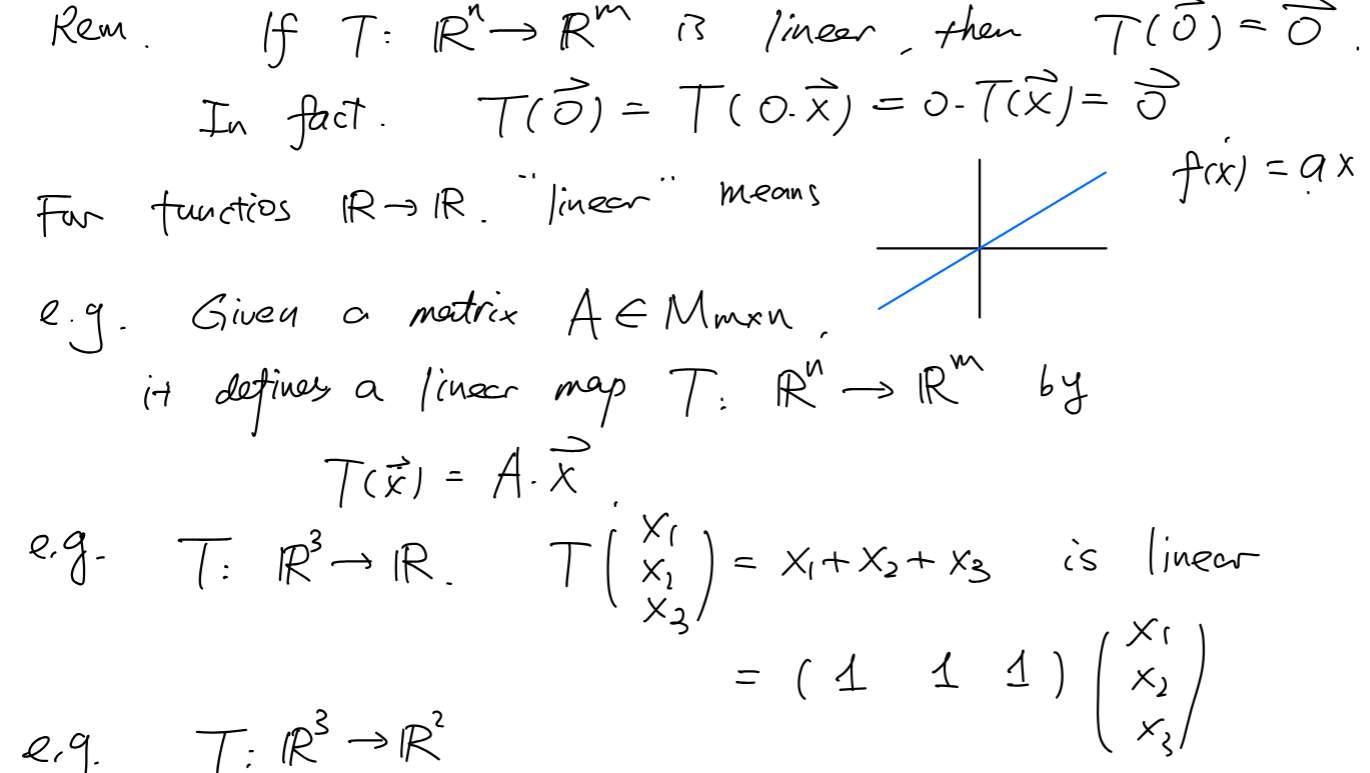 Rem. If T: ℝⁿ → ℝᵐ is linear, then T(0⃗) = 0⃗.
In fact. T(0⃗) = T(0·x⃗) = 0·T(x⃗) = 0⃗
For functios ℝ→ℝ. "linear" means f(x) = ax
e.g. Given a matrix A ∈ Mm×n,
it defines a linear map T: ℝⁿ → ℝᵐ by
T(x⃗) = A·x⃗.
e.g. T: ℝ³ → ℝ. T(x₁ x₂ x₃) = x₁ + x₂ + x₃ is linear
= (1 1 1)(x₁ x₂ x₃)
e.g. T: ℝ³ → ℝ²